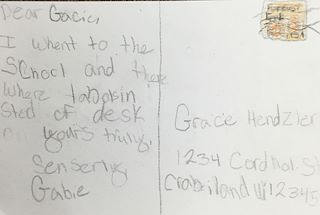 Dear Gacie,
I whent to the
School and there
where tabols in
sted of desk
yours truly,
Senserly,
Gabie
Grace Hendzler
1234 Cordnol St
12345